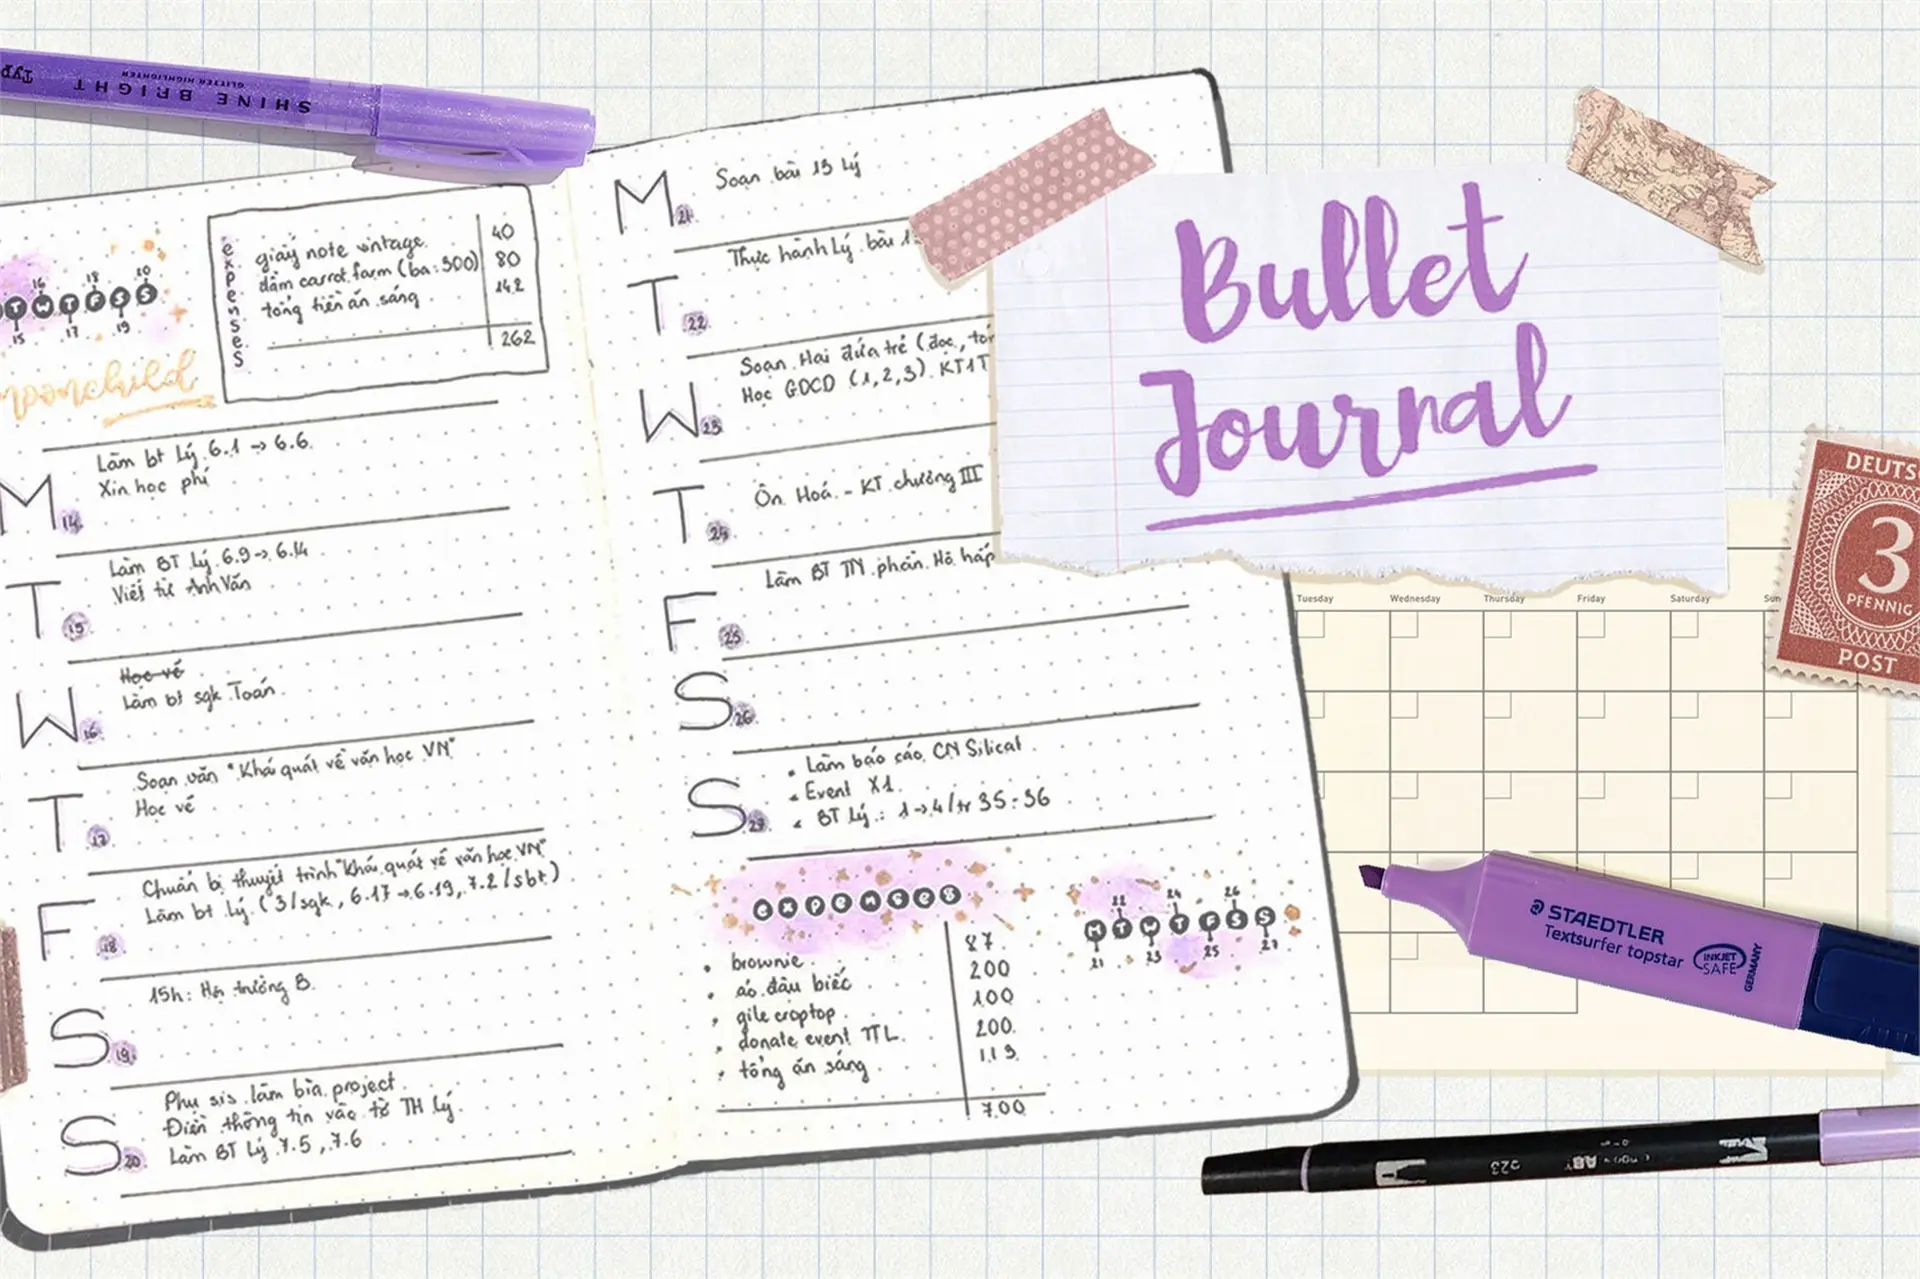 SHINE BRIGHT
GLITTER HIGHLIGHTER
Typ
16 18 20
T W T F S S
15 17 19
moonchild
expenses
giấy note vintage 40
dầm carrot farm (ba: 300) 80
tổng tiền ăn sáng 142
262
M 14
Làm bt Lý 6.1 → 6.6
Xin học phí
T 15
Làm BT Lý 6.9 → 6.14
Viết từ Anh Văn
W 16
Học vẽ
Làm bt sgk Toán
T 17
Soạn văn "Khái quát về văn học VN"
Học vẽ
F 18
Chuẩn bị thuyết trình "Khái quát về văn học VN"
Làm bt lý (3/sgk, 6.17 → 6.19, 7.2/sbt)
S 19
15h: Hội trường B
S 20
Phụ sis làm bìa project
Điền thông tin vào tờ TH Lý
Làm BT Lý 7.5, 7.6
M 21
Soạn bài 13 Lý
T 22
Thực hành Lý bài 1
W 23
Soạn Hai đứa trẻ (đọc,
Học GDCD (1,2,3) KT1T
T 24
Ôn Hoá - KT chương III
F 25
Làm BT TN phần Hô hấp
S 26
S 27
• Làm báo cáo CN Silicat
• Event X1
• BT Lý: 1 → 4/tr 35-36
expenses
• brownie 87
• áo dầu biếc 200
• gile croptop 100
• donate event TTL 200
• tổng ăn sáng 113
700
22 24 26
M T W T F S S
21 23 25 27
Bullet
Journal
Tuesday Wednesday Thursday Friday Saturday Sun
DEUTS
3
PFENNIG
POST
STAEDTLER
Textsurfer topstar
INKJET
SAFE
GERMANY
523
AB